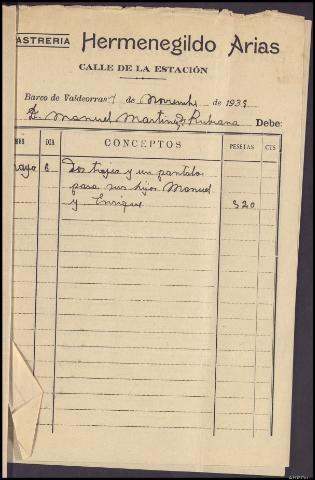 ASTRERIA Hermenegildo Arias
CALLE DE LA ESTACIÓN
Barco de Valdeorras 7 de Noviembre de 1935
D. Manuel Martinez Rubiana Debe:
MES DIA CONCEPTOS PESETAS CTS
mayo 6 Dos trajes y un pantalo
para sus hijos Manuel
y Enrique 320